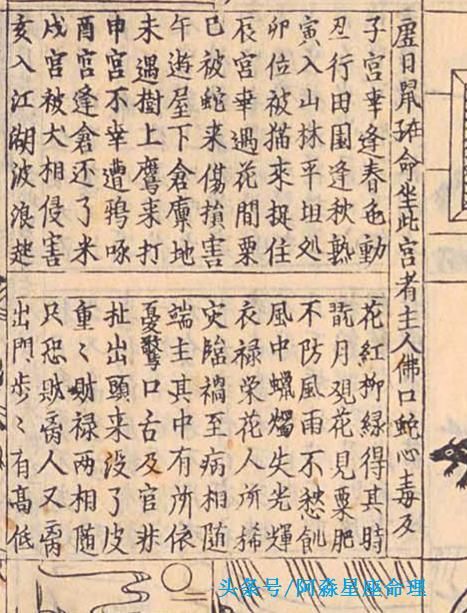 虛日鼠在命坐此宮者主人佛口蛇心毒及
子宮幸逢春色動
花紅柳緑得其時
丑行田園逢秋熟
翫月观花見粟肥
寅入山林平坦処
不防風雨不愁飢
卯位被猫來捉住
風中蠟燭失光輝
辰宮幸遇花間粟
衣禄栄花人所稀
巳被蛇来傷損害
灾臨禍至病相随
午遊屋下倉廩地
端主其中有所依
未遇樹上鷹来打
憂驚口舌及官非
申宮不幸遭鴉啄
扯出頭来没了皮
酉宮逢倉还了米
重〻財禄两相随
戌宮被犬相侵害
只恐財人又
亥入江湖波浪
出門歩〻有髙低
头条号/阿淼星座命理